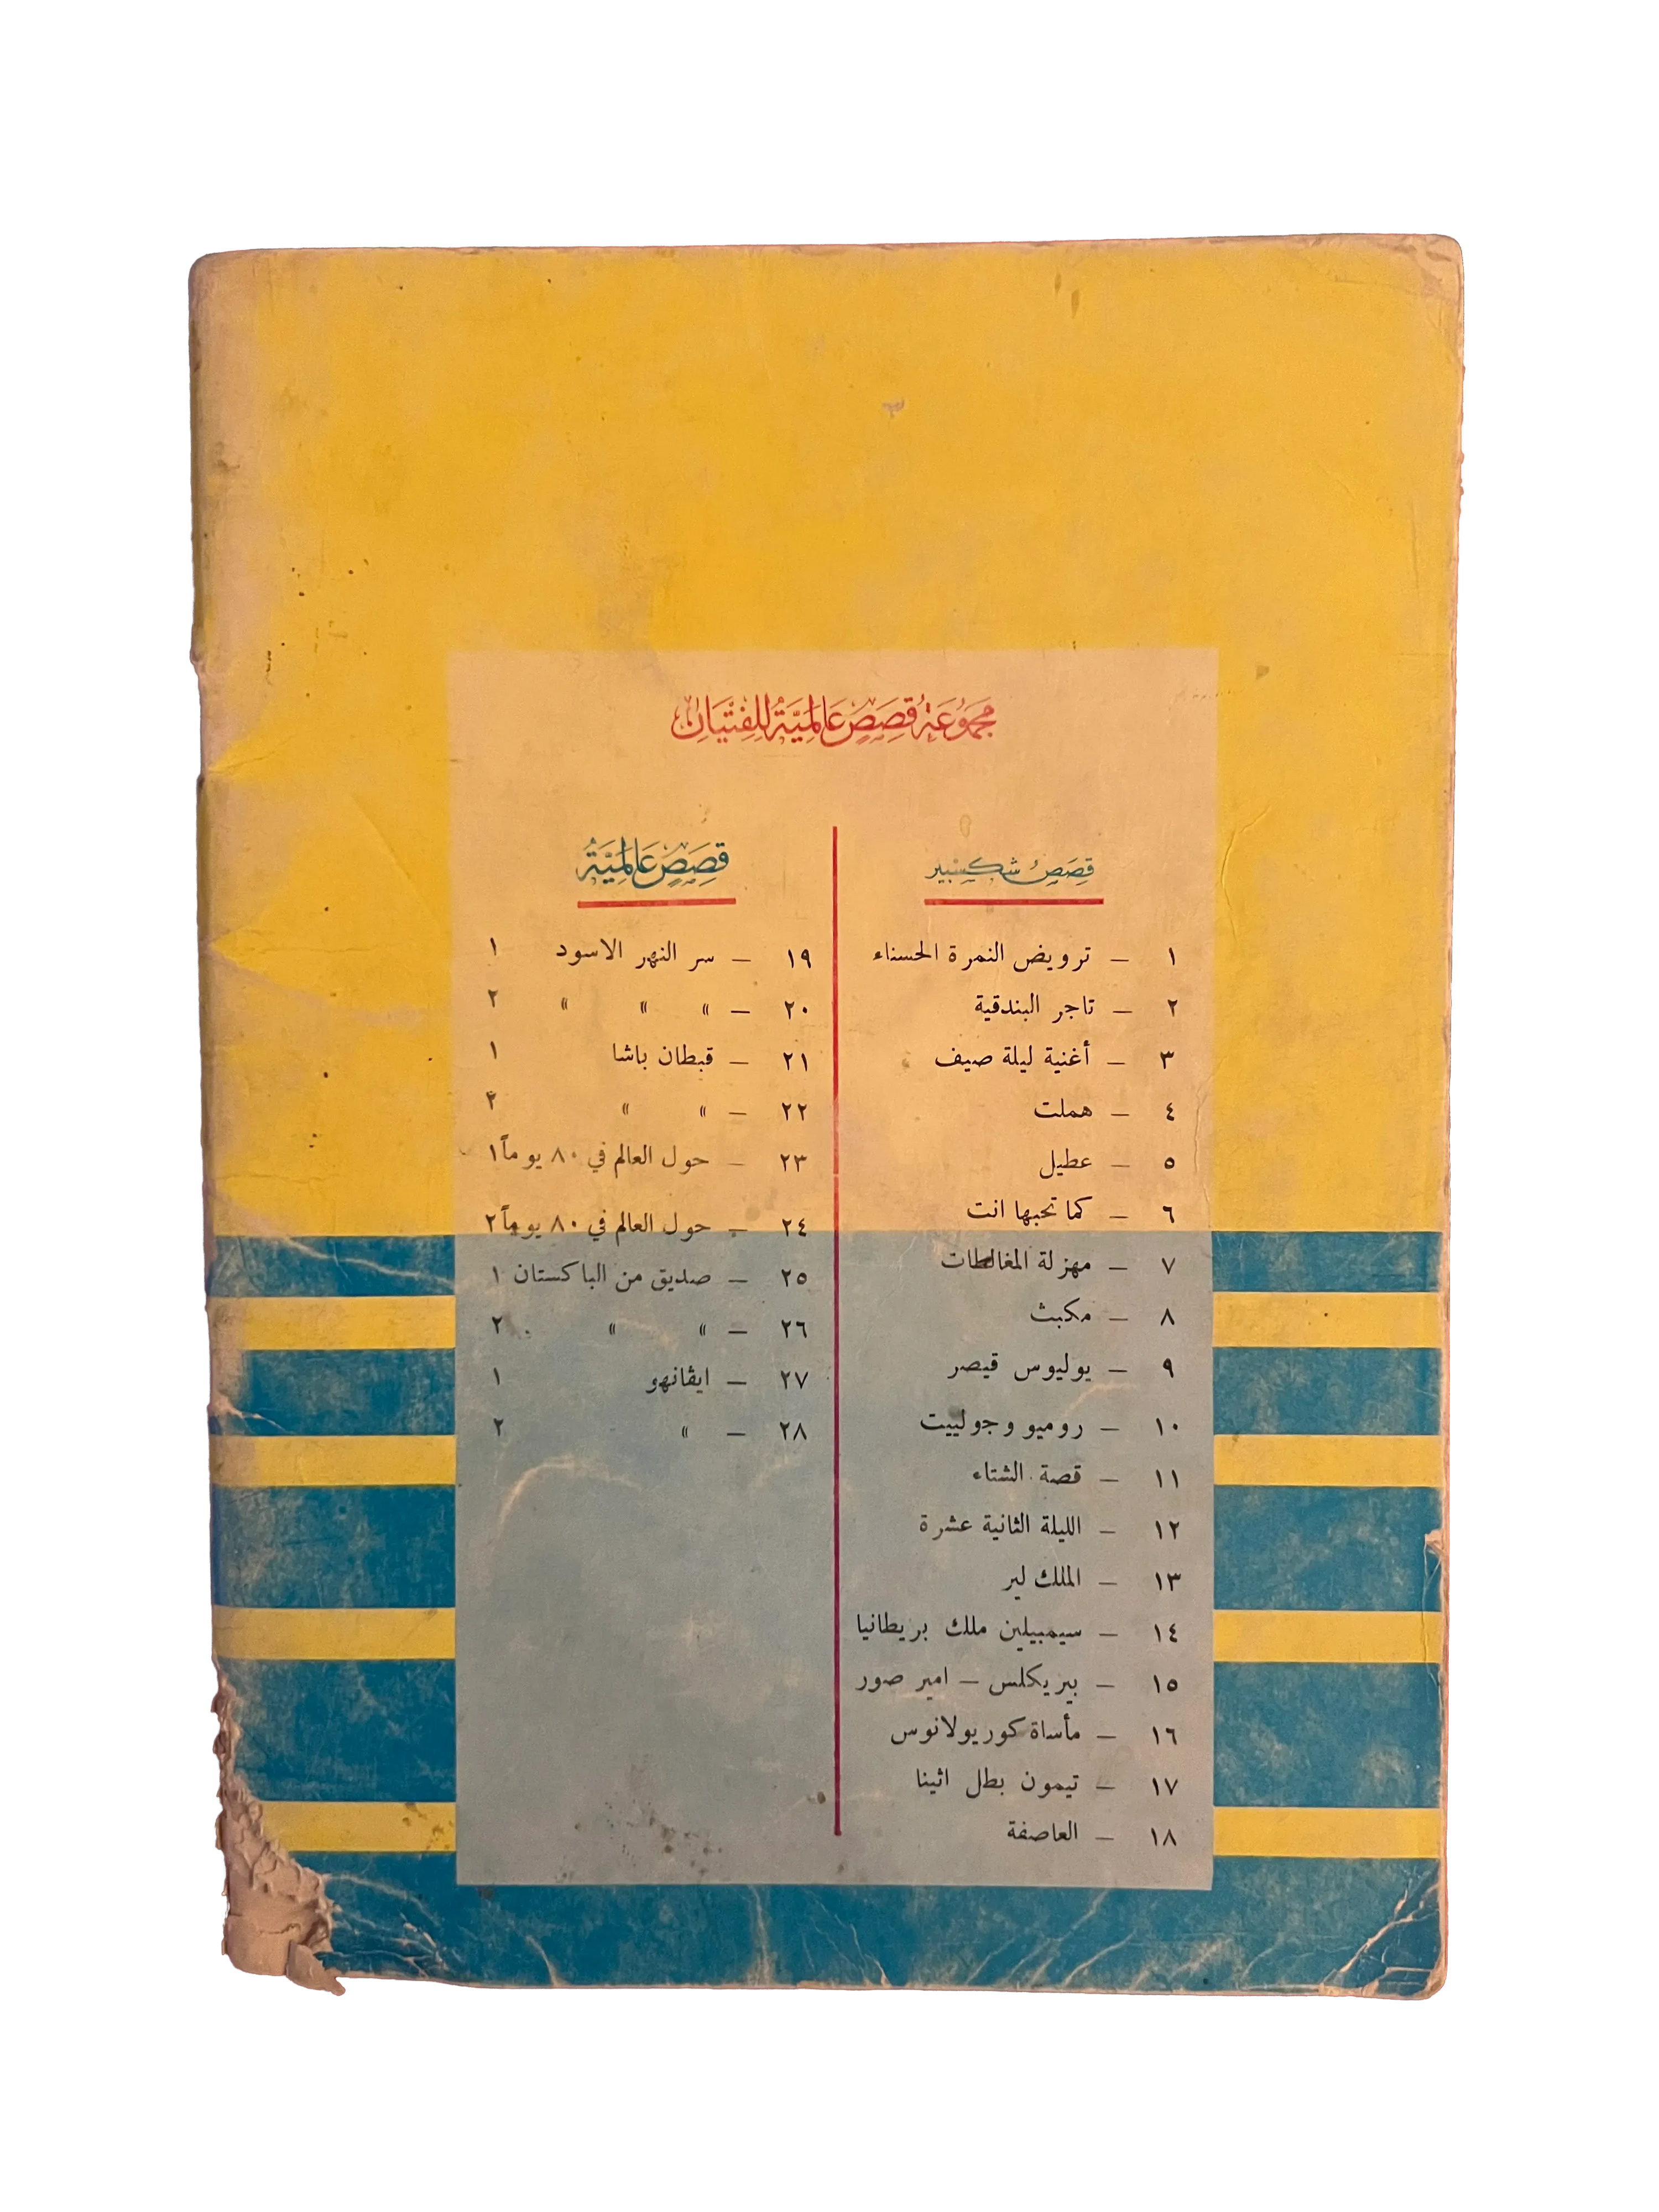 مجموعة قصص عالمية للفتيان
قصص شكسبير
١ – ترويض النمرة الحسناء
٢ – تاجر البندقية
٣ – أغنية ليلة صيف
٤ – هملت
٥ – عطيل
٦ – كما تحبها انت
٧ – مهزلة المغالطات
٨ – مكبث
٩ – يوليوس قيصر
١٠ – روميو وجولييت
١١ – قصة الشتاء
١٢ – الليلة الثانية عشرة
١٣ – الملك لير
١٤ – سيمبيلين ملك بريطانيا
١٥ – بيريكلس – امير صور
١٦ – مأساة كوريولانوس
١٧ – تيمون بطل اثينا
١٨ – العاصفة
قصص عالمية
١٩ – سر النهر الاسود ١
٢٠ – » » » ٢
٢١ – قبطان باشا ١
٢٢ – » » ٢
٢٣ – حول العالم في ٨٠ يوماً ١
٢٤ – حول العالم في ٨٠ يوماً ٢
٢٥ – صديق من الباكستان ١
٢٦ – » » ٢
٢٧ – ايڤانهو ١
٢٨ – » ٢